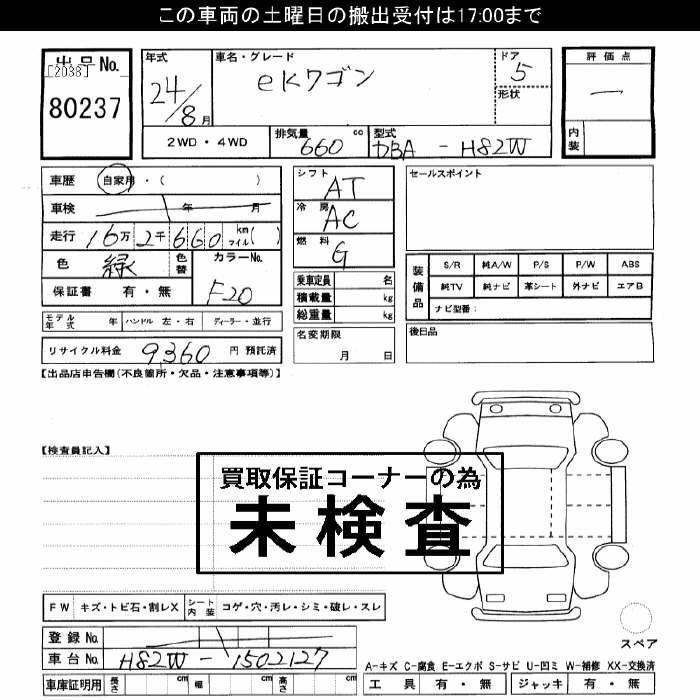 この車両の土曜日の搬出受付は17:00まで
出品No.
[2038]
80237
年式
24/8月
車名・グレード
eKワゴン
ドア
5
形状
評価点
—
内装
2WD・4WD
排気量 660 cc
型式 DBA - H82W
車歴 自家用・( )
車検 年 月
走行 16万2千660 km マイル( )
色 緑 色替
カラーNo.
F20
保証書 有・無
モデル年式 年 ハンドル 左・右 ディーラー・並行
リサイクル料金 9,360 円 預託済
シフト AT
冷房 AC
燃料 G
乗車定員 名
積載量 kg
総重量 kg
名変期限
月 日
セールスポイント
装備品
S/R 純A/W P/S P/W ABS
純TV 純ナビ 革シート 外ナビ エアB
ナビ型番:
後日品
【出品店申告欄(不良箇所・欠品・注意事項等)】
【検査員記入】
買取保証コーナーの為
未検査
FW キズ・トビ石・割レX シート内装 コゲ・穴・汚レ・シミ・破レ・スレ
登録No.
車台No. H82W - 1502127
車庫証明用 長さ cm 幅 cm 高さ cm
スペア
A-キズ C-腐食 E-エクボ S-サビ U-凹ミ W-補修 XX-交換済
工具 有・無 ジャッキ 有・無